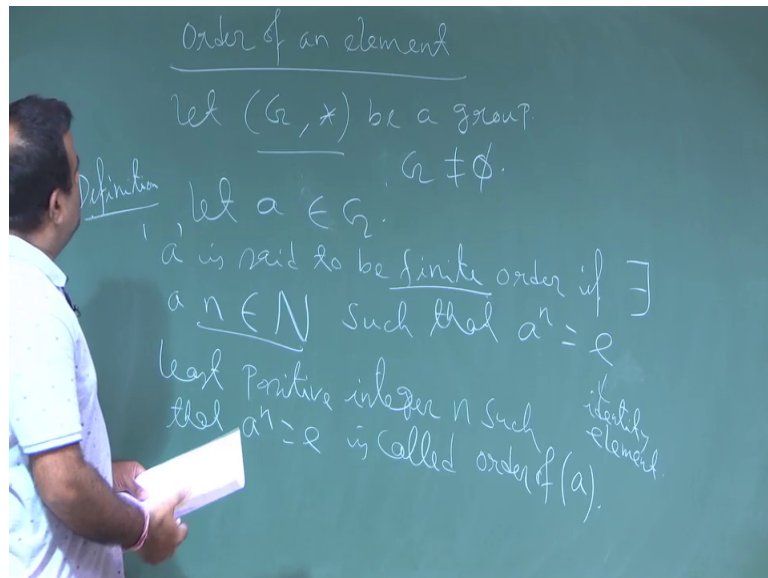 Order of an element
Let (G, *) be a group.
G ≠ φ.
Definition
Let a ∈ G.
'a' is said to be finite order if ∃
a n ∈ N such that aⁿ = e
identity
element.
Least Positive integer n such
that aⁿ = e is called order of (a).